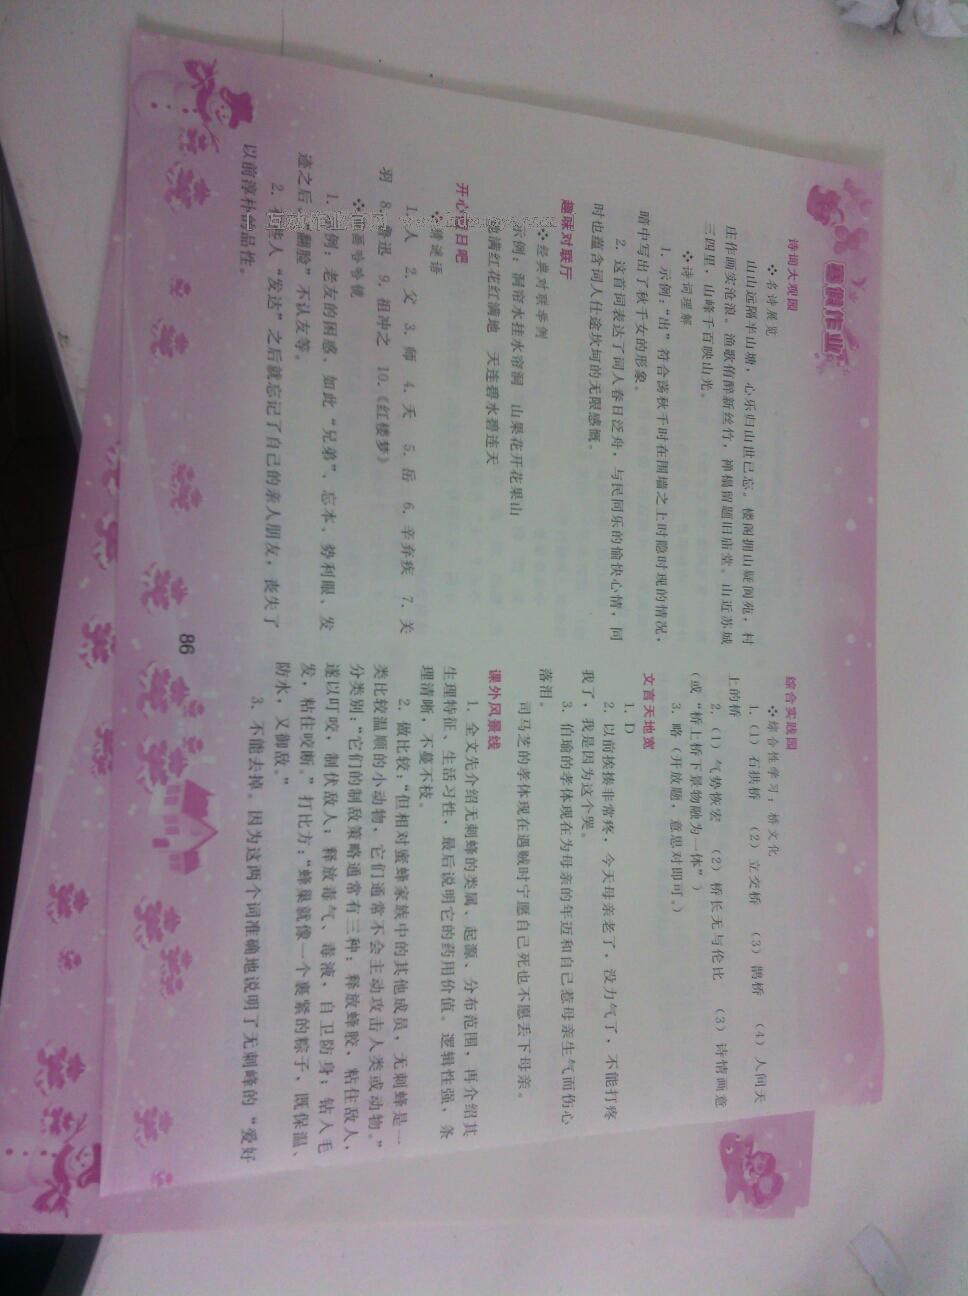 寒假作业
诗词大观园
❖名诗展览
山山远隔半山塘，心乐归山世已忘。楼阁拥山疑阆苑，村
庄作画实沧浪。渔歌侑醉新丝竹，禅榻留题旧庙堂。山近苏城
三四里，山峰千百映山光。
❖诗词理解
1. 示例：“出”符合荡秋千时在围墙之上时隐时现的情况，
暗中写出了秋千女的形象。
2. 这首词表达了词人春日泛舟，与民同乐的愉快心情，同
时也蕴含词人仕途坎坷的无限感慨。
趣味对联厅
❖经典对联举例
示例：洞帘水挂水帘洞 山果花开花果山
地满红花红满地 天连碧水碧连天
开心假日吧
❖猜谜语
1. 人 2. 父 3. 师 4. 天 5. 岳 6. 辛弃疾 7. 关
羽 8. 鲁迅 9. 祖冲之 10.《红楼梦》
❖漫画哈哈镜
1. 示例：老友的困惑，如此“兄弟”、忘本、势利眼、发
迹之后，“翻脸”不认友等。
2. 有些人“发达”之后就忘记了自己的亲人朋友，丧失了
以前淳朴的品性。
综合实践园
❖综合性学习：桥文化
1.（1）石拱桥 （2）立交桥 （3）鹊桥 （4）人间天
上的桥
2.（1）气势恢宏 （2）桥长无与伦比 （3）诗情画意
（或“桥上桥下景物融为一体”）
3. 略（开放题，意思对即可。）
文言天地宽
1. D
2. 以前挨揍非常疼，今天母亲老了，没力气了，不能打疼
我了，我是因为这个哭。
3. 伯瑜的孝体现在为母亲的年迈和自己惹母亲生气而伤心
落泪。
司马芝的孝体现在遇贼时宁愿自己死也不愿丢下母亲。
课外风景线
1. 全文先介绍无刺蜂的类属、起源、分布范围，再介绍其
生理特征、生活习性，最后说明它的药用价值。逻辑性强，条
理清晰，不蔓不枝。
2. 做比较：“但相对蜜蜂家族中的其他成员，无刺蜂是一
类比较温顺的小动物，它们通常不会主动攻击人类或动物。”
分类别：“它们的制敌策略通常有三种：释放蜂胶，粘住敌人，
遂以叮咬，制伏敌人；释放毒气、毒液，自卫防身；钻入毛
发，粘住咬断。”打比方：“蜂巢就像一个裹紧的粽子，既保温、
防水，又御敌。”
3. 不能去掉。因为这两个词准确地说明了无刺峰的“爱好
86